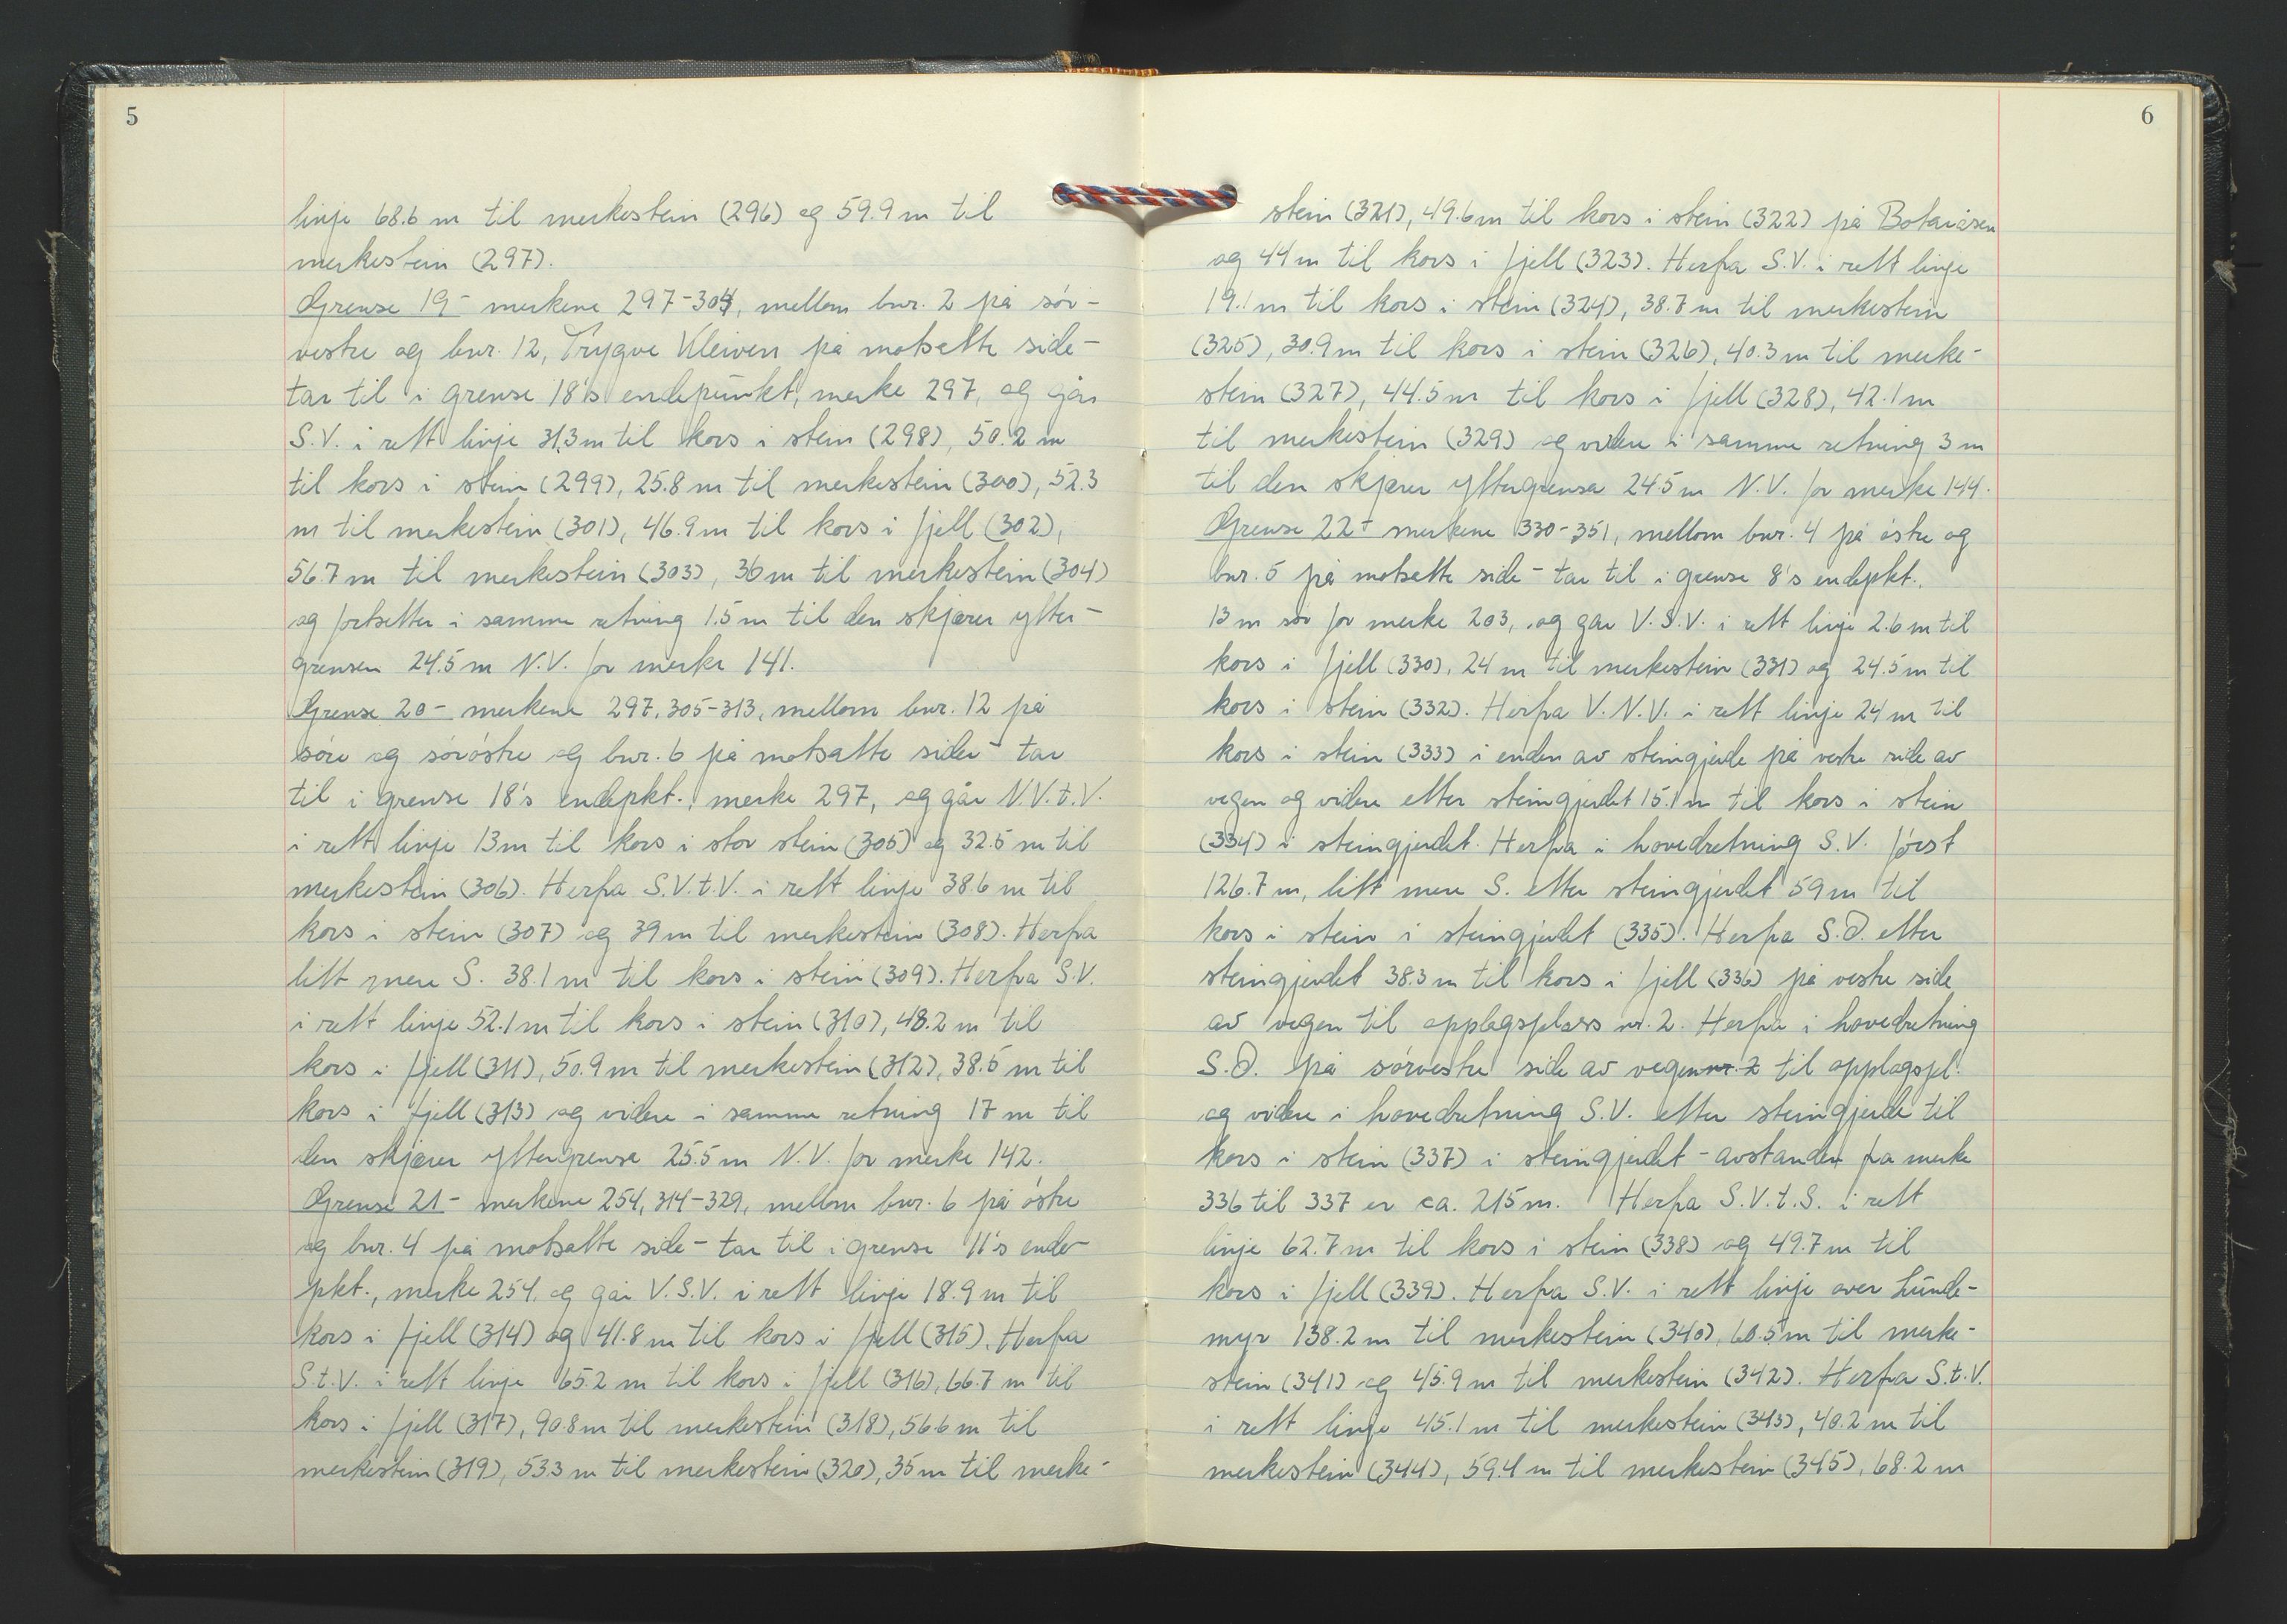 5
linje 68.6 m til merkestein (296) og 59.9 m til
merkestein (297).
Grense 19 - merkene 297-304, mellom bnr. 2 på sør-
vestre og bnr. 12, Trygve Kleiven på motsatte side -
tar til i grense 18's endepunkt, merke 297, og går
S.V. i rett linje 31.3 m til kors i stein (298), 50.2 m
til kors i stein (299), 25.8 m til merkestein (300), 52.3
m til merkestein (301), 46.9 m til kors i fjell (302),
56.7 m til merkestein (303), 36 m til merkestein (304)
og fortsetter i samme retning 1.5 m til den skjærer ytter-
grensen 24.5 m N.V. for merke 141.
Grense 20 - merkene 297, 305-313, mellom bnr. 12 på
søre og sørøstre og bnr. 6 på motsatte sider - tar
til i grense 18's endepkt., merke 297, og går N.V.t.V.
i rett linje 13 m til kors i stor stein (305) og 32.5 m til
merkestein (306). Herfra S.V.t.V. i rett linje 38.6 m til
kors i stein (307) og 39 m til merkestein (308). Herfra
litt mere S. 38.1 m til kors i stein (309). Herfra S.V.
i rett linje 52.1 m til kors i stein (310), 48.2 m til
kors i fjell (311), 50.9 m til merkestein (312), 38.5 m til
kors i fjell (313) og videre i samme retning 17 m til
den skjærer yttergrensa 25.5 m N.V. for merke 142.
Grense 21 - merkene 254, 314-329, mellom bnr. 6 på østre
og bnr. 4 på motsatte side - tar til i grense 11's ende-
pkt., merke 254, og går V.S.V. i rett linje 18.9 m til
kors i fjell (314) og 41.8 m til kors i fjell (315). Herfra
S.t.V. i rett linje 65.2 m til kors i fjell (316), 66.7 m til
kors i fjell (317), 90.8 m til merkestein (318), 56.6 m til
merkestein (319), 53.3 m til merkestein (320), 35 m til merke-
6
stein (321), 49.6 m til kors i stein (322) på
og 44 m til kors i fjell (323). Herfra S.V. i rett linje
19.1 m til kors i stein (324), 38.7 m til merkestein
(325), 30.9 m til kors i stein (326), 40.3 m til merke-
stein (327), 44.5 m til kors i fjell (328), 42.1 m
til merkestein (329) og videre i samme retning 3 m
til den skjærer yttergrensa 24.5 m N.V. for merke 144.
Grense 22 - merkene 330-351, mellom bnr. 4 på østre og
bnr. 5 på motsatte side - tar til i grense 8's endepkt.,
13 m sør for merke 203, og går V.S.V. i rett linje 2.6 m til
kors i fjell (330), 24 m til merkestein (331) og 24.5 m til
kors i stein (332). Herfra V.N.V. i rett linje 24 m til
kors i stein (333) i enden av steingjerde på vestre side av
vegen og videre etter steingjerdet 15.1 m til kors i stein
(334) i steingjerdet. Herfra i hovedretning S.V. først
126.7 m, litt mere S. etter steingjerdet 59 m til
kors i stein i steingjerdet (335). Herfra S.Ø. etter
steingjerdet 38.3 m til kors i fjell (336) på vestre side
av vegen til opplagsplass nr. 2. Herfra i hovedretning
S.Ø. på sørvestre side av vegen nr. 2 til opplagspl.
og videre i hovedretning S.V. etter steingjerde til
kors i stein (337) i steingjerdet - avstanden fra merke
336 til 337 er ca. 215 m. Herfra S.V.t.S. i rett
linje 62.7 m til kors i stein (338) og 49.7 m til
kors i fjell (339). Herfra S.V. i rett linje over Lunde-
myr 138.2 m til merkestein (340), 60.5 m til merke-
stein (341) og 45.9 m til merkestein (342). Herfra S.t.V.
i rett linje 45.1 m til merkestein (343), 40.2 m til
merkestein (344), 59.4 m til merkestein (345), 68.2 m